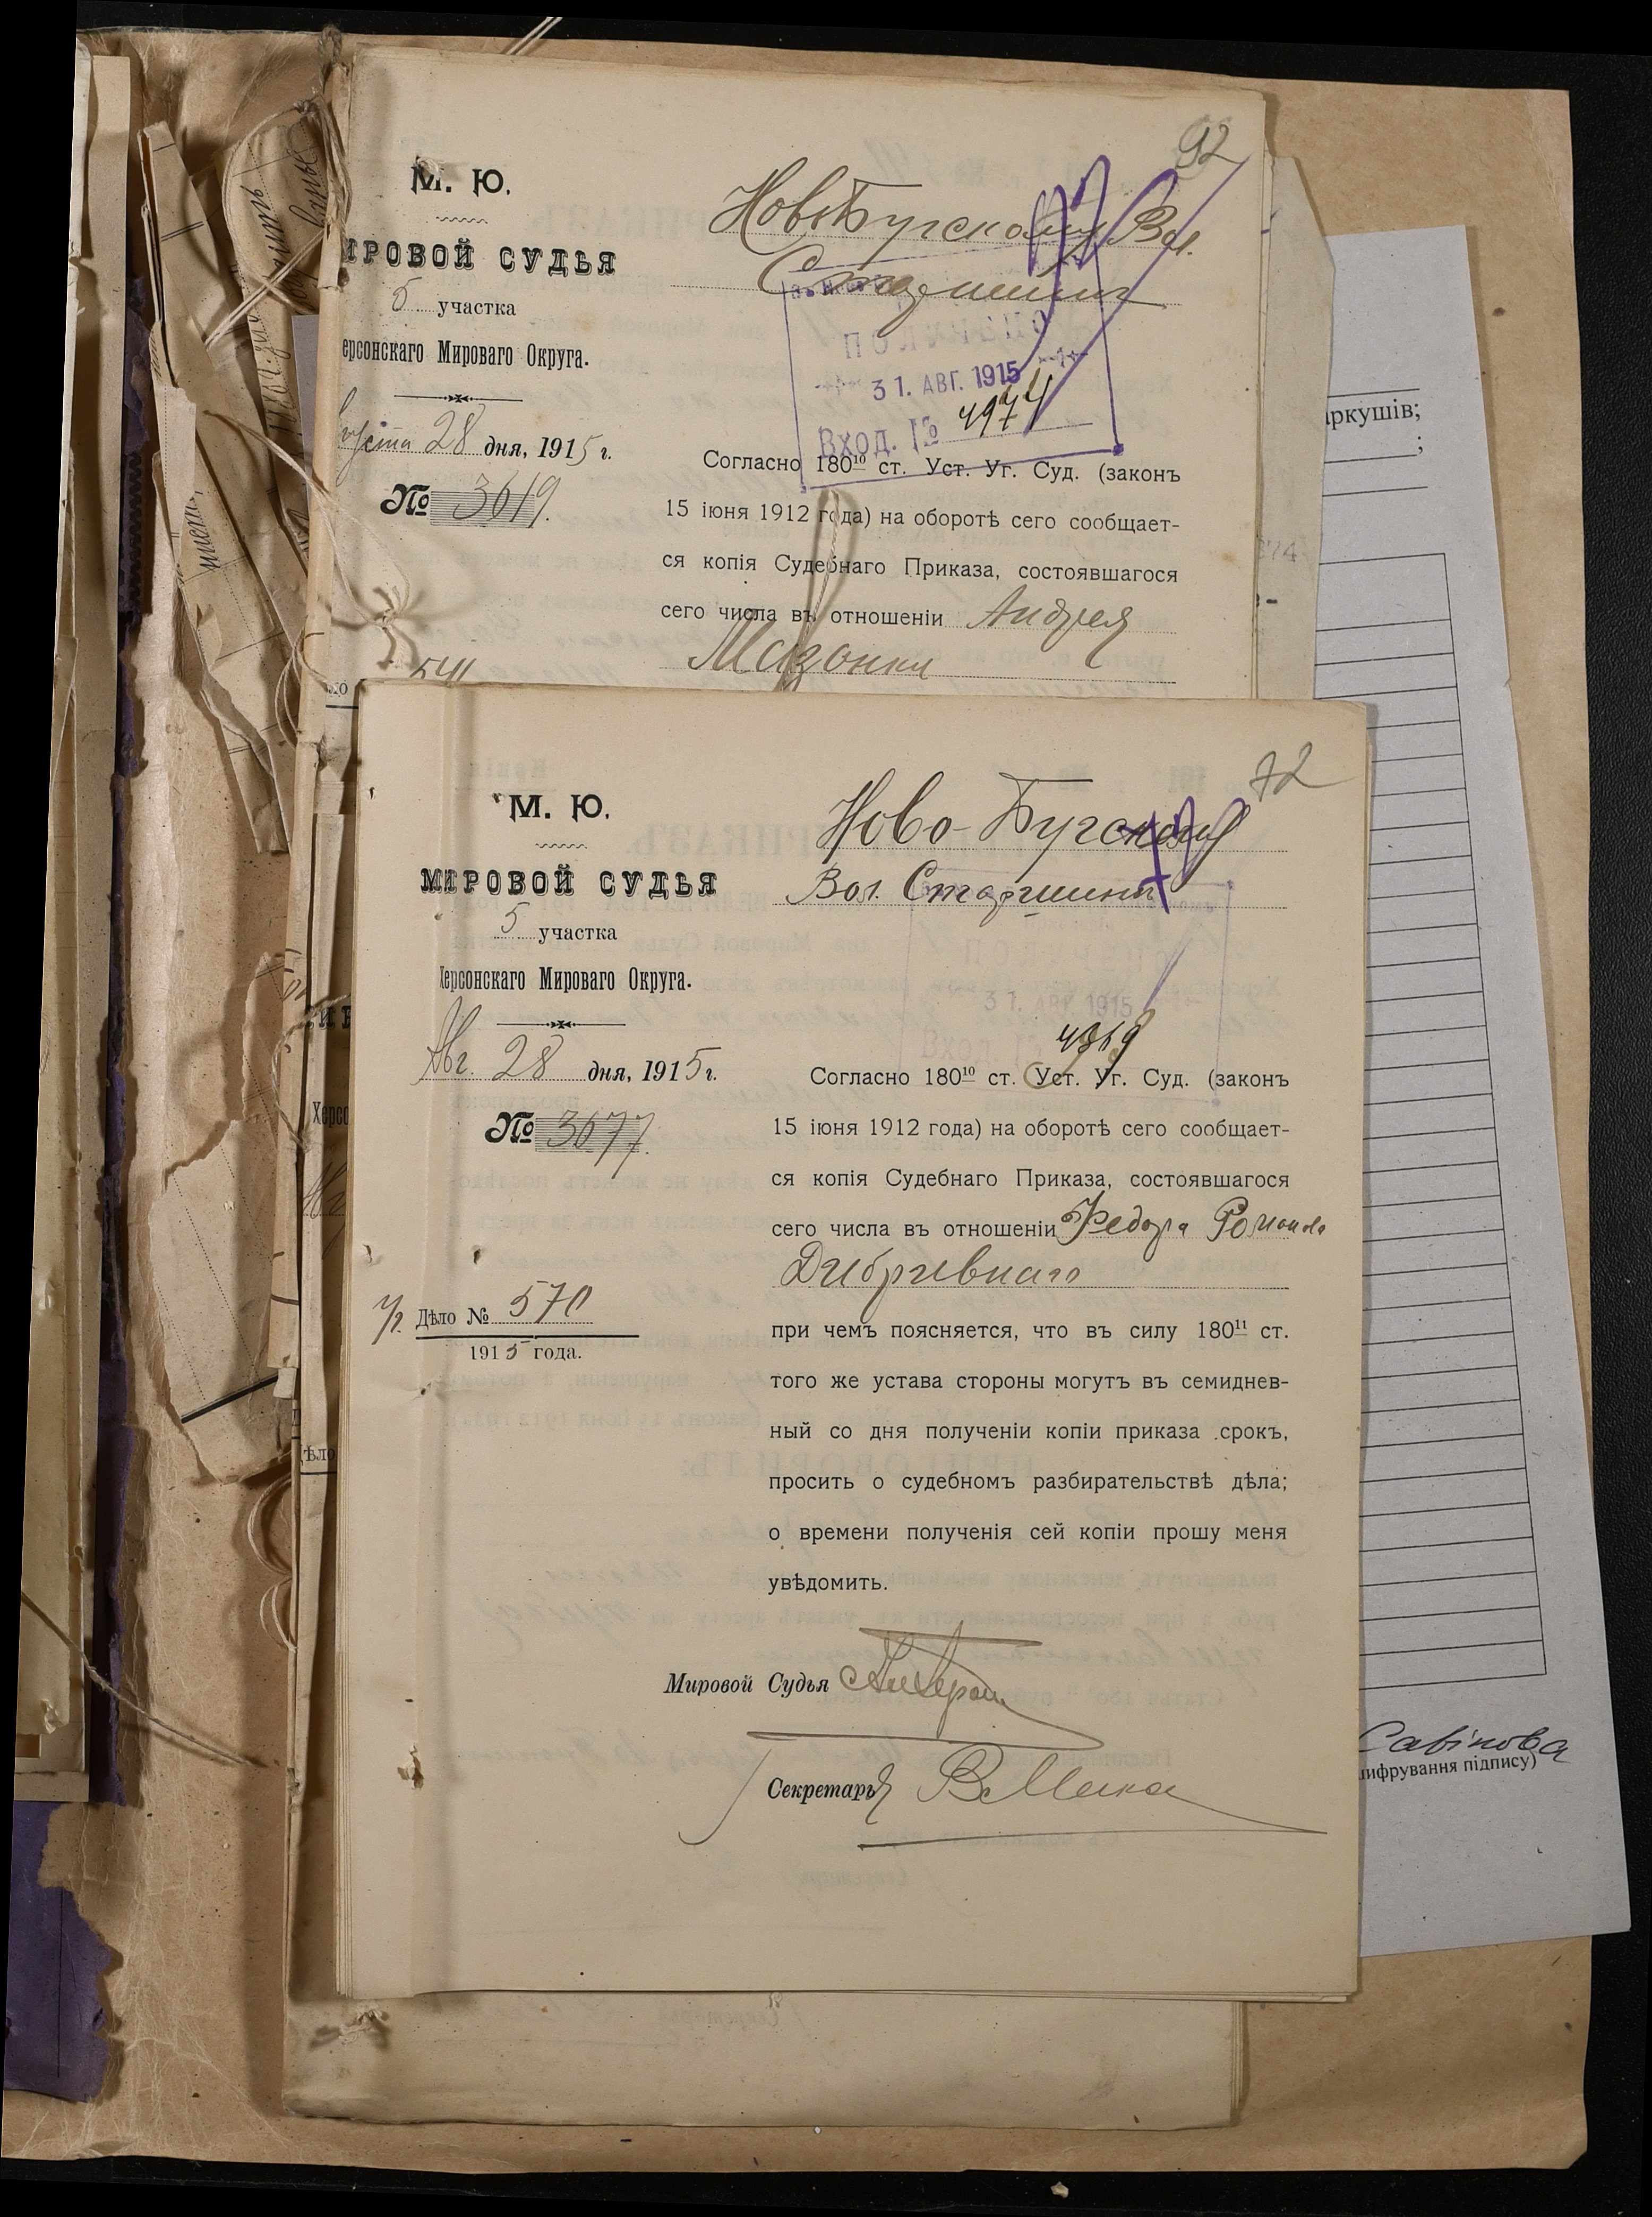 92
М. Ю.
МИРОВОЙ СУДЬЯ
5 участка
ерсонскаго Мироваго Округа.
28 дня, 1915 г.
№ 3619.
НовоБугскому Вол.
Старшинѣ
ПОЛУЧЕНО
31. АВГ. 1915
Вход. № 4974
Согласно 180¹⁰ ст. Уст. Уг. Суд. (законъ
15 іюня 1912 года) на оборотѣ сего сообщает-
ся копія Судебнаго Приказа, состоявшагося
сего числа въ отношеніи Андрея
Мазонки
541
72
М. Ю.
МИРОВОЙ СУДЬЯ
5 участка
Херсонскаго Мироваго Округа.
Авг. 28 дня, 1915 г.
№ 3677.
Дѣло № 570
1915 года.
Ново-Бугскому
Вол. Старшинѣ
31. АВГ. 1915
Вход.
4969
Согласно 180¹⁰ ст. Уст. Уг. Суд. (законъ
15 іюня 1912 года) на оборотѣ сего сообщает-
ся копія Судебнаго Приказа, состоявшагося
сего числа въ отношеніи Федора Романова
при чемъ поясняется, что въ силу 180¹¹ ст.
того же устава стороны могутъ въ семиднев-
ный со дня полученіи копіи приказа срокъ,
просить о судебномъ разбирательствѣ дѣла;
о времени полученія сей копіи прошу меня
увѣдомить.
Мировой Судья
Секретарь
аркушів;
;
Савінова
ифрування підпису)
Херсо
ѣло